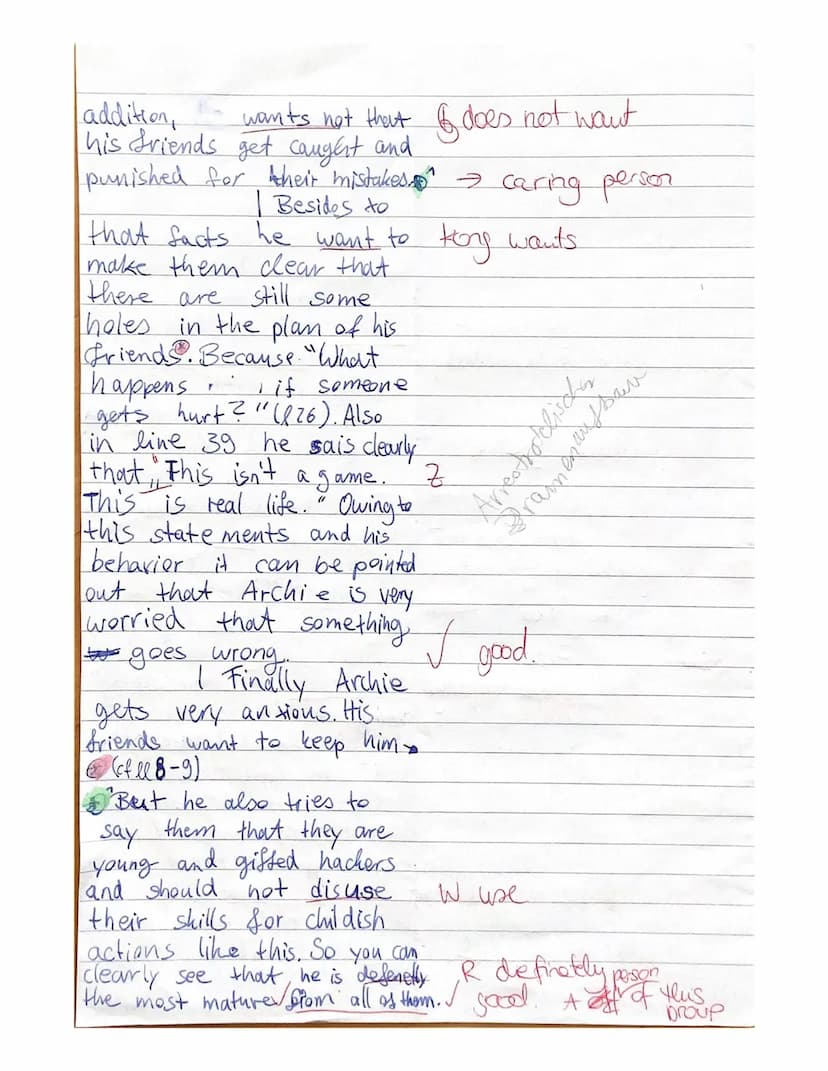 addition, wants not that G does not want
his friends get caught and
punished for their mistakes. → caring person
| Besides to
that facts he want to Kong wants
make them clear that
there are still some
holes in the plan of his
friends. Because "What
happens if someone
gets hurt?" (l 26). Also
in line 39 he sais clearly
that "This isn't a game. Z
This is real life." Owing to
this statements and his
behavior it can be pointed
out that Archie is very
worried that something
goes wrong. ✓ good.
| Finally Archie
gets very anxious. His
friends want to keep him
(cf ll 8-9)
But he also tries to
say them that they are
young and gifted hackers
and should not disuse W use
their skills for childish
actions like this. So you can
clearly see that he is defenetly R definetely person
the most mature from all of them. ✓ good. A of this group